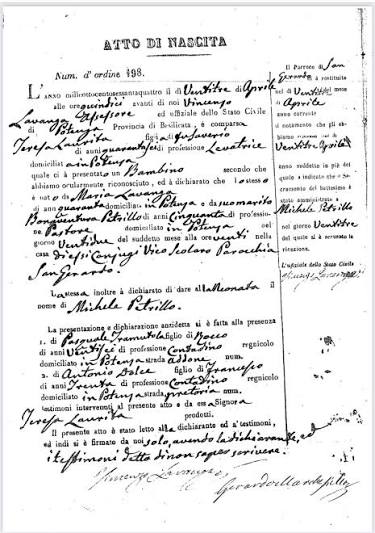 ATTO DI NASCITA
Num. d'ordine 198.
L'anno milleottocentosessantaquattro il dì Ventitre di Aprile
alle ore quindici avanti di noi Vincenzo
Lavanga Assessore ed uffiziale dello Stato Civile
di Potenza Provincia di Basilicata, è comparsa
Teresa Laurita figlia di fu Saverio
di anni quarantasei di professione Levatrice
domiciliata in Potenza
quale ci à presentato un Bambino secondo che
abbiamo ocularmente riconosciuto, ed à dichiarato che lo stesso
è nato da Maria Lavanga
di anni quaranta domiciliata in Potenza e da suo marito
Bonaventura Petrillo di anni Cinquanta di professione
Pastore domiciliato in Potenza nel
giorno Ventidue del suddetto mese alle ore venti nella
casa di essi Conjugi Vico Scolaro Parocchia
San Gerardo.
La stessa, inoltre à dichiarato di dare al Neonato il
nome di Michele Petrillo.
La presentazione e dichiarazione anzidetta si è fatta alla presenza
1. di Pasquale Tramutola figlio di Rocco
di anni Ventisei di professione Contadino regnicolo
domiciliato in Potenza strada Addone num.
2. di Antonio Dolce figlio di Francesco
di anni Trenta di professione Contadino regnicolo
domiciliato in Potenza strada pretoria num.
testimoni intervenuti al presente atto e da essa Signora
Teresa Laurita predotti.
Il presente atto è stato letto alla dichiarante ed a' testimoni,
ed indi si è firmato da noi solo, avendo la dichiarante, ed
i testimoni detto di non saper scrivere.
Vincenzo Lavanga
Il Parroco di San
Gerardo
nel dì Ventitre
di Aprile
anno corrente
Ventitre Aprile
anno suddetto in piè del
Michele Petrillo
nel giorno Ventitre
L'uffiziale dello Stato Civile